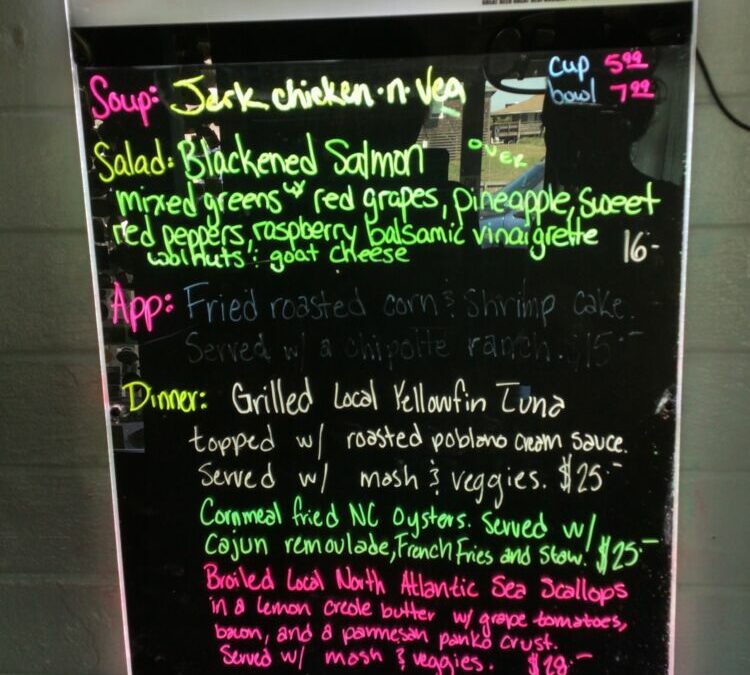 Soup: Jerk chicken n Veg
cup 5.99
bowl 7.99
Salad: Blackened Salmon over
mixed greens w/ red grapes, pineapple, sweet
red peppers, raspberry balsamic vinaigrette
walnuts & goat cheese 16-
App: Fried roasted corn & Shrimp cake.
Served w/ a chipotle ranch. $15.-
Dinner: Grilled Local Yellowfin Tuna
topped w/ roasted poblano cream sauce.
Served w/ mash & veggies. $25.-
Cornmeal fried NC Oysters. Served w/
Cajun remoulade, French Fries and Slaw. $25.-
Broiled Local North Atlantic Sea Scallops
in a lemon creole butter w/ grape tomatoes,
bacon, and a parmesan panko crust.
Served w/ mash & veggies. $28.-